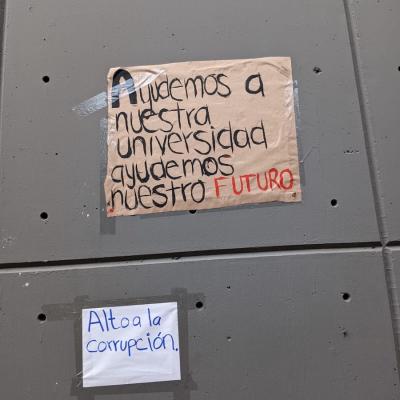 Ayudemos a
nuestra
universidad
ayudemos
nuestro FUTURO
Alto a la
corrupción.